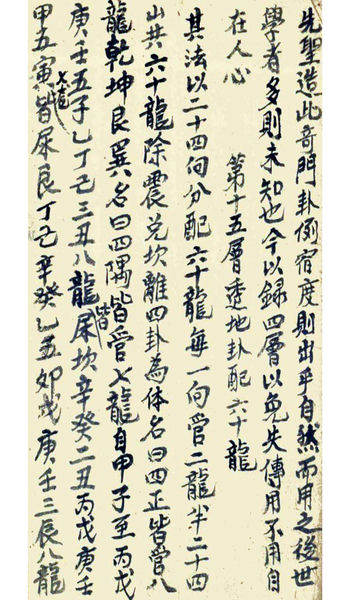 先聖造此奇門卦例宿度則出乎自然而用之後世
學者多則未知也今以録四層以免失傳用不用自
在人心　　第十五層透地卦配六十龍
其法以二十四向分配六十龍每一向管二龍半二十四
山共六十龍除震兌坎離四卦為体名曰四正皆管八
龍乾坤艮巽名曰四隅皆管七龍自甲子至丙戊
庚壬五子乙丁己三丑八龍皆屎坎辛癸二丑丙戊庚壬
甲五寅七龍皆屎艮丁己辛癸乙五卯戊庚壬三辰八龍